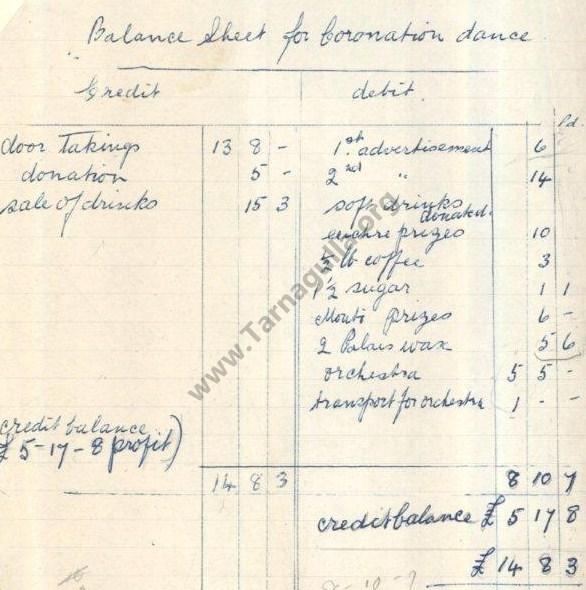 Balance Sheet for Coronation dance
Credit debit.
Pd.
door takings 13 8 - 1st advertisement 6
donation 5 - 2nd " 14
sale of drinks 15 3 soft drinks donated.
euchre prizes 10
½ lb coffee 3
1½ sugar 1 1
Monte prizes 6 -
2 Palais wax 5 6
orchestra 5 5 -
transport for orchestra 1 - -
credit balance
£ 5-17-8 profit)
14 8 3 8 10 7
credit balance £ 5 17 8
£ 14 8 3
www.Tarnagulla.org